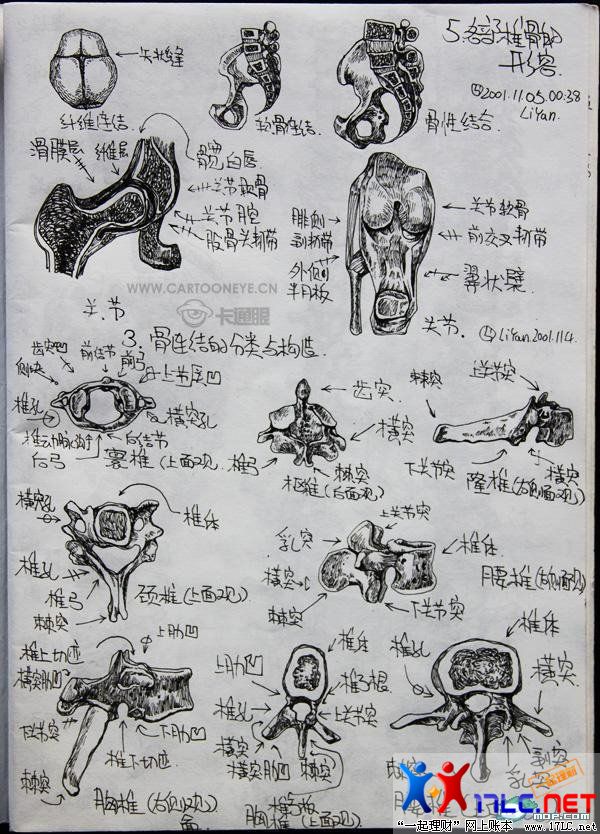 矢状缝
纤维连结
软骨连结.
骨性结合.
5.各部椎骨的
形态.
2001.11.05.00:38
LiYan.
滑膜层
纤维层
髋臼唇
关节软骨
关节腔
股骨头韧带
关节.
腓侧
副韧带
外侧
半月板
关节软骨
前交叉韧带
翼状襞
关节.
LiYan.2001.11.4
WWW.CARTOONEYE.CN
卡通眼
3.骨连结的分类与构造.
齿突凹
前结节
前弓
上关节凹
侧块
椎孔
横突孔
椎动脉沟
后结节
后弓
寰椎(上面观)
齿突
横突
椎弓
棘突
枢椎(后面观)
棘突
上关节突
下关节突
横突
隆椎(右侧面观)
横突孔
椎体
椎孔
椎弓
棘突
颈椎(上面观)
上关节突
乳突
椎体
横突
棘突
下关节突
腰椎(右侧面观)
椎上切迹
上肋凹
横突肋凹
下关节突
下肋凹
椎下切迹
棘突
胸椎(右侧面观)
上肋凹
椎体
椎弓根
椎孔
上关节突
横突
横突肋凹
棘突
椎弓板
胸椎(上面观)
椎孔
椎体
横突
副突
乳突
棘突
17LC.net
一起理财
mop.com
"一起理财"网上账本
www.17LC.net